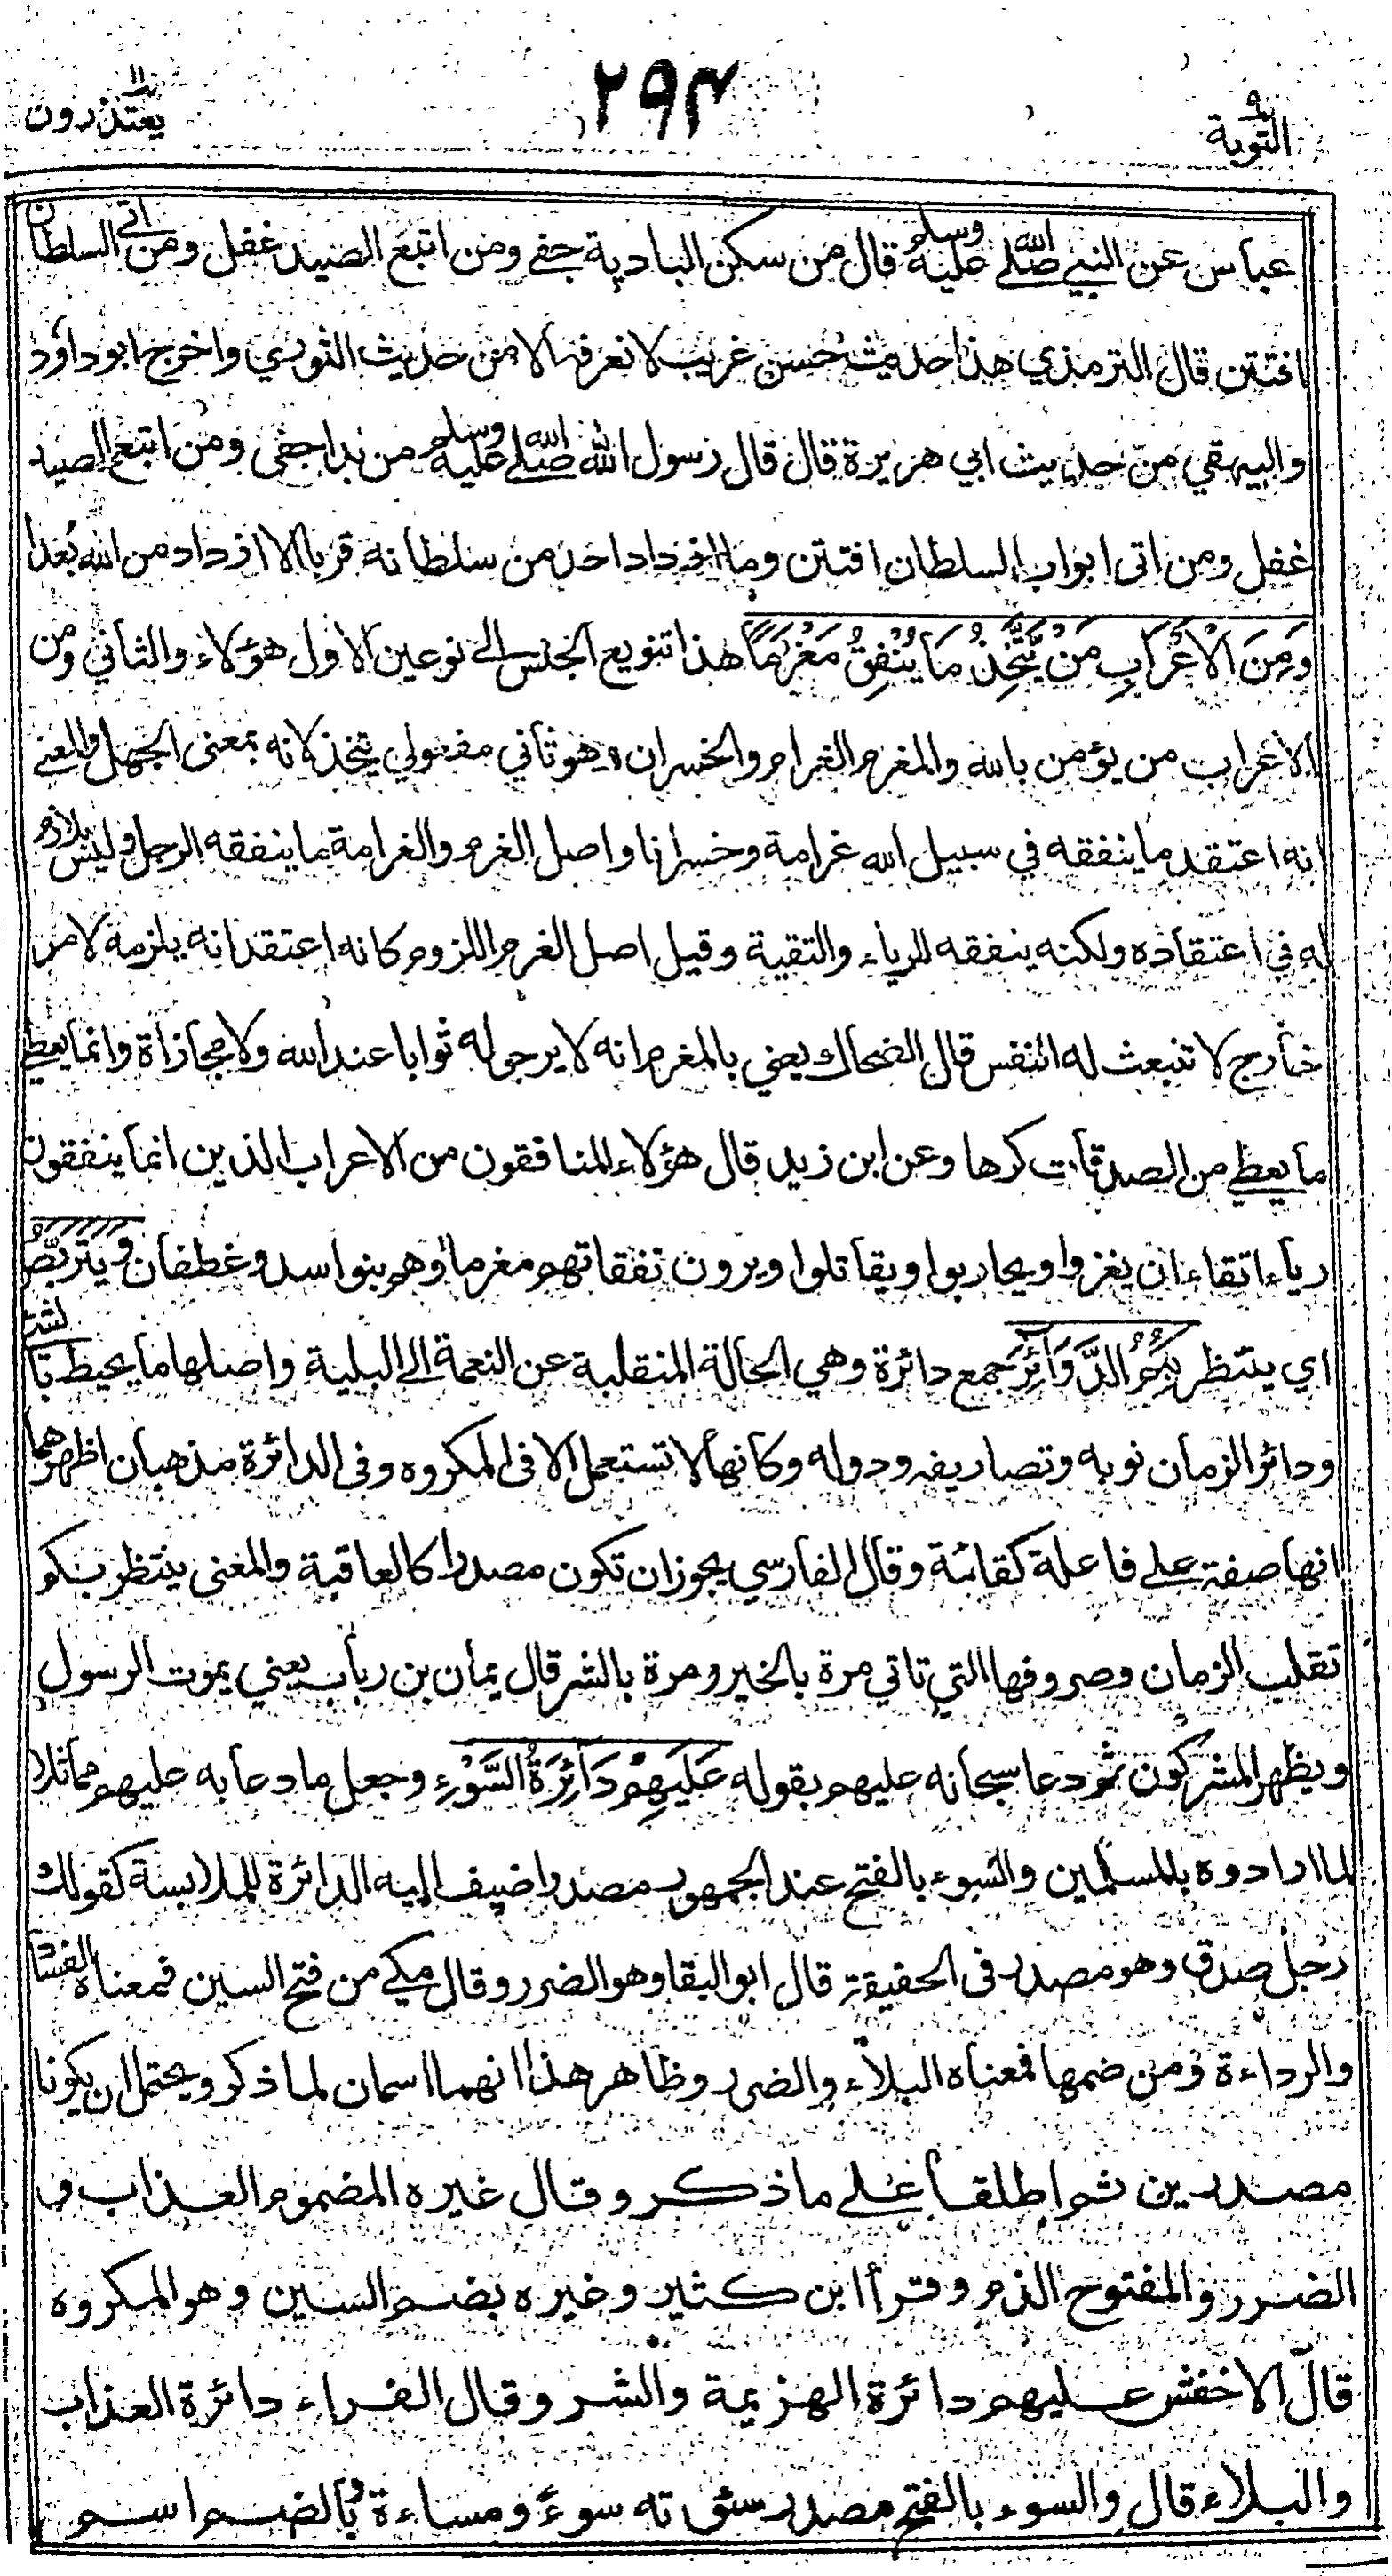 التوبة ٩
٢٩٤
يعتذرون ١١
عباس عن النبي صلى الله عليه وسلم قال من سكن البادية جفى ومن اتبع الصيد غفل ومن اتى السلطان
افتتن قال الترمذي هذا حديث حسن غريب لا نعرفه الا من حديث الثوري واخرج ابو داؤد
والبيهقي من حديث ابي هريرة قال قال رسول الله صلى الله عليه وسلم من بدا جفى ومن اتبع الصيد
غفل ومن اتى ابواب السلطان افتتن وما ازداد احد من سلطانه قربا الا ازداد من الله بُعدا
وَمِنَ الْأَعْرَابِ مَنْ يَتَّخِذُ مَا يُنْفِقُ مَغْرَمًا هذا تنويع الجنس الى نوعين الاول هؤلاء والثاني ومن
الاعراب من يؤمن بالله والمغرم الغرام والخسران وهو ثاني مفعولي يتخذ لانه بمعنى الجهل والمعنى
انه اعتقد ما ينفقه في سبيل الله غرامة وخسرانا واصل الغرم والغرامة ما ينفقه الرجل وليس بلازم
له في اعتقاده ولكنه ينفقه للرياء والتقية وقيل اصل الغرم اللزوم كانه اعتقد انه يلزمه لامر
خارج لا تنبعث له النفس قال الضحاك يعني بالمغرم انه لا يرجو له ثوابا عند الله ولا مجازاة وانما يعطي
ما يعطي من الصدقات كرها وعن ابن زيد قال هؤلاء المنافقون من الاعراب الذين انما ينفقون
رياء اتقاء ان يغزوا ويحاربوا ويقاتلوا ويرون نفقاتهم مغرما وهم بنو اسد وغطفان وَيَتَرَبَّصُ
اي ينتظر بِكُمُ الدَّوَائِرَ جمع دائرة وهي الحالة المنقلبة عن النعمة الى البلية واصلها ما يحيط بالشئ
ودائر الزمان نوبه وتصاريفه ودوله وكانها لا تستعمل الا في المكروه وفي الدائرة مذهبان اظهرهما
انها صفة على فاعلة كقائمة وقال الفارسي يجوز ان تكون مصدرا كالعاقبة والمعنى ينتظر بكم
تقلب الزمان وصروفها التي تاتي مرة بالخير ومرة بالشر قال يمان بن رباب يعني يموت الرسول
ويظهر المشركون ثم دعا سبحانه عليهم بقوله عَلَيْهِمْ دَائِرَةُ السَّوْءِ وجعل ما دعا به عليهم مماثلا
لما ارادوه بالمسلمين والسوء بالفتح عند الجمهور مصدر اضيف اليه الدائرة للملابسة كقولك
رجلُ صدق وهو مصدر في الحقيقة قال ابو البقا وهو الضرر وقال مكي من فتح السين فمعناه الفساد
والرداءة ومن ضمها فمعناه البلاء والضرر وظاهر هذا انهما اسمان لما ذكر ويحتمل ان يكونا
مصدرين ثم اطلقا على ما ذكر وقال غيره المضموم العذاب و
الضرر والمفتوح الذم وقرأ ابن كثير وغيره بضم السين وهو المكروه
قال الاخفش عليهم دائرة الهزيمة والشر وقال الفراء دائرة العذاب
والبلاء قال والسوء بالفتح مصدر سئوته سوءً ومساءة وبالضم اسم